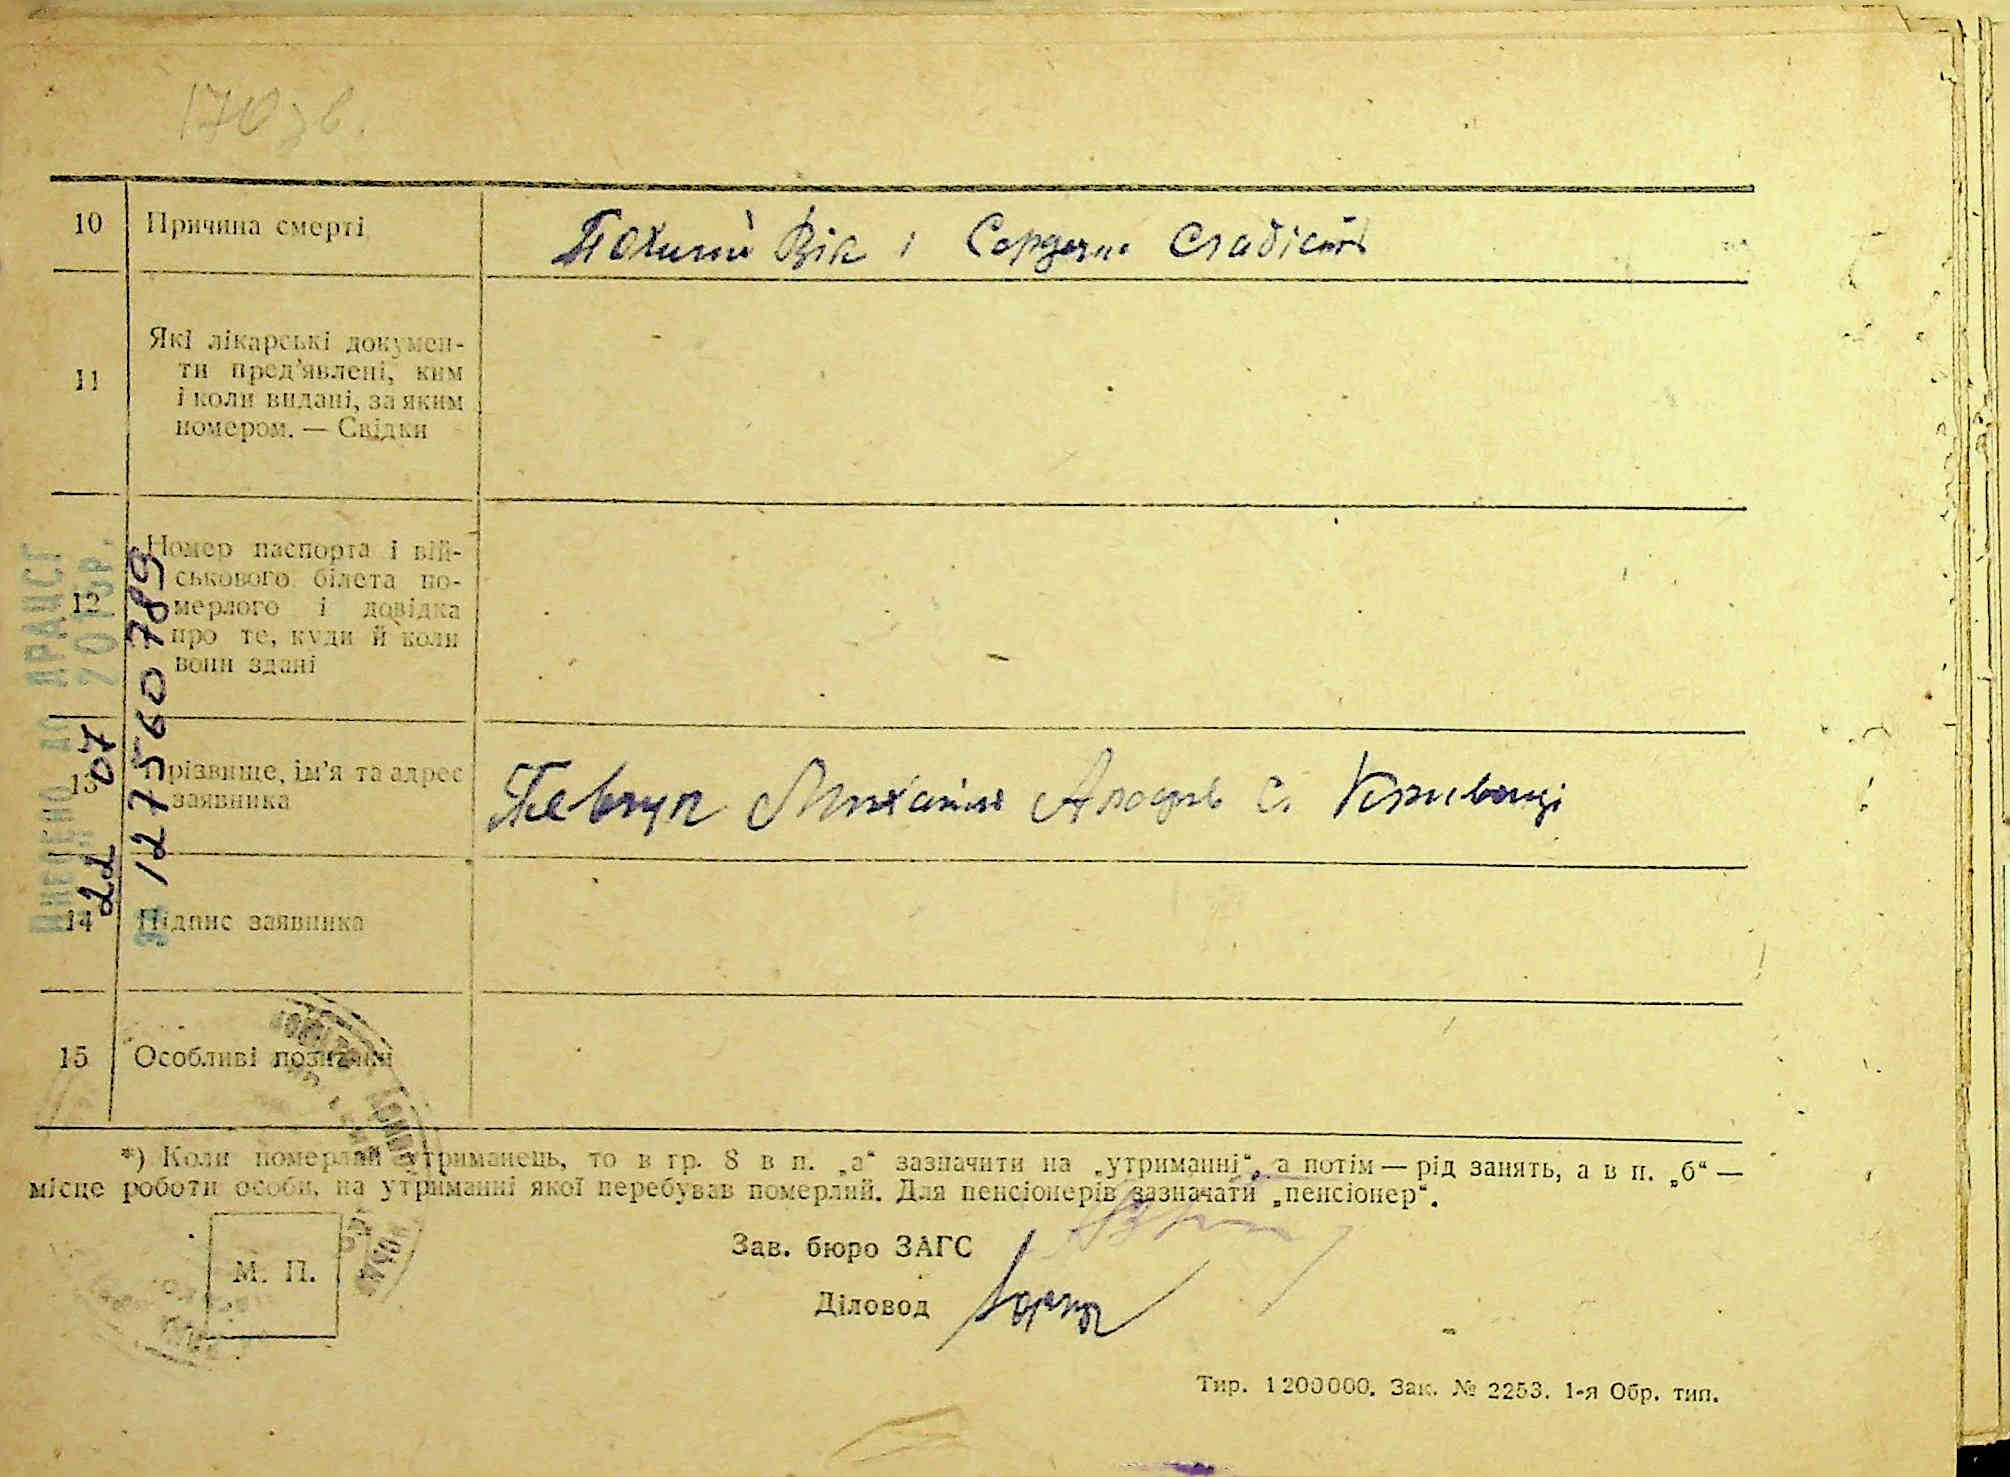 170 зв.
10 Причина смерті Похилий Вік і Сердечна Слабість
11 Які лікарські докумен-
ти пред'явлені, ким
і коли видані, за яким
номером. — Свідки
12 Номер паспорта і вій-
ськового білета по-
мерлого і довідка
про те, куди й коли
вони здані
13 Прізвище, ім'я та адрес
заявника
Михайло с. Кривенці
14 Підпис заявника
15 Особливі позначки
ВНЕСЕНО ДО ДРАЦСГ
22 07 201 р.
за 12756 0789
*) Коли померлий утриманець, то в гр. 8 в п. „а“ зазначити на „утриманні“, а потім — рід занять, а в п. „б“ —
місце роботи особи, на утриманні якої перебував померлий. Для пенсіонерів зазначати „пенсіонер“.
М. П.
Зав. бюро ЗАГС
Діловод
Тир. 1200000. Зак. № 2253. 1-я Обр. тип.